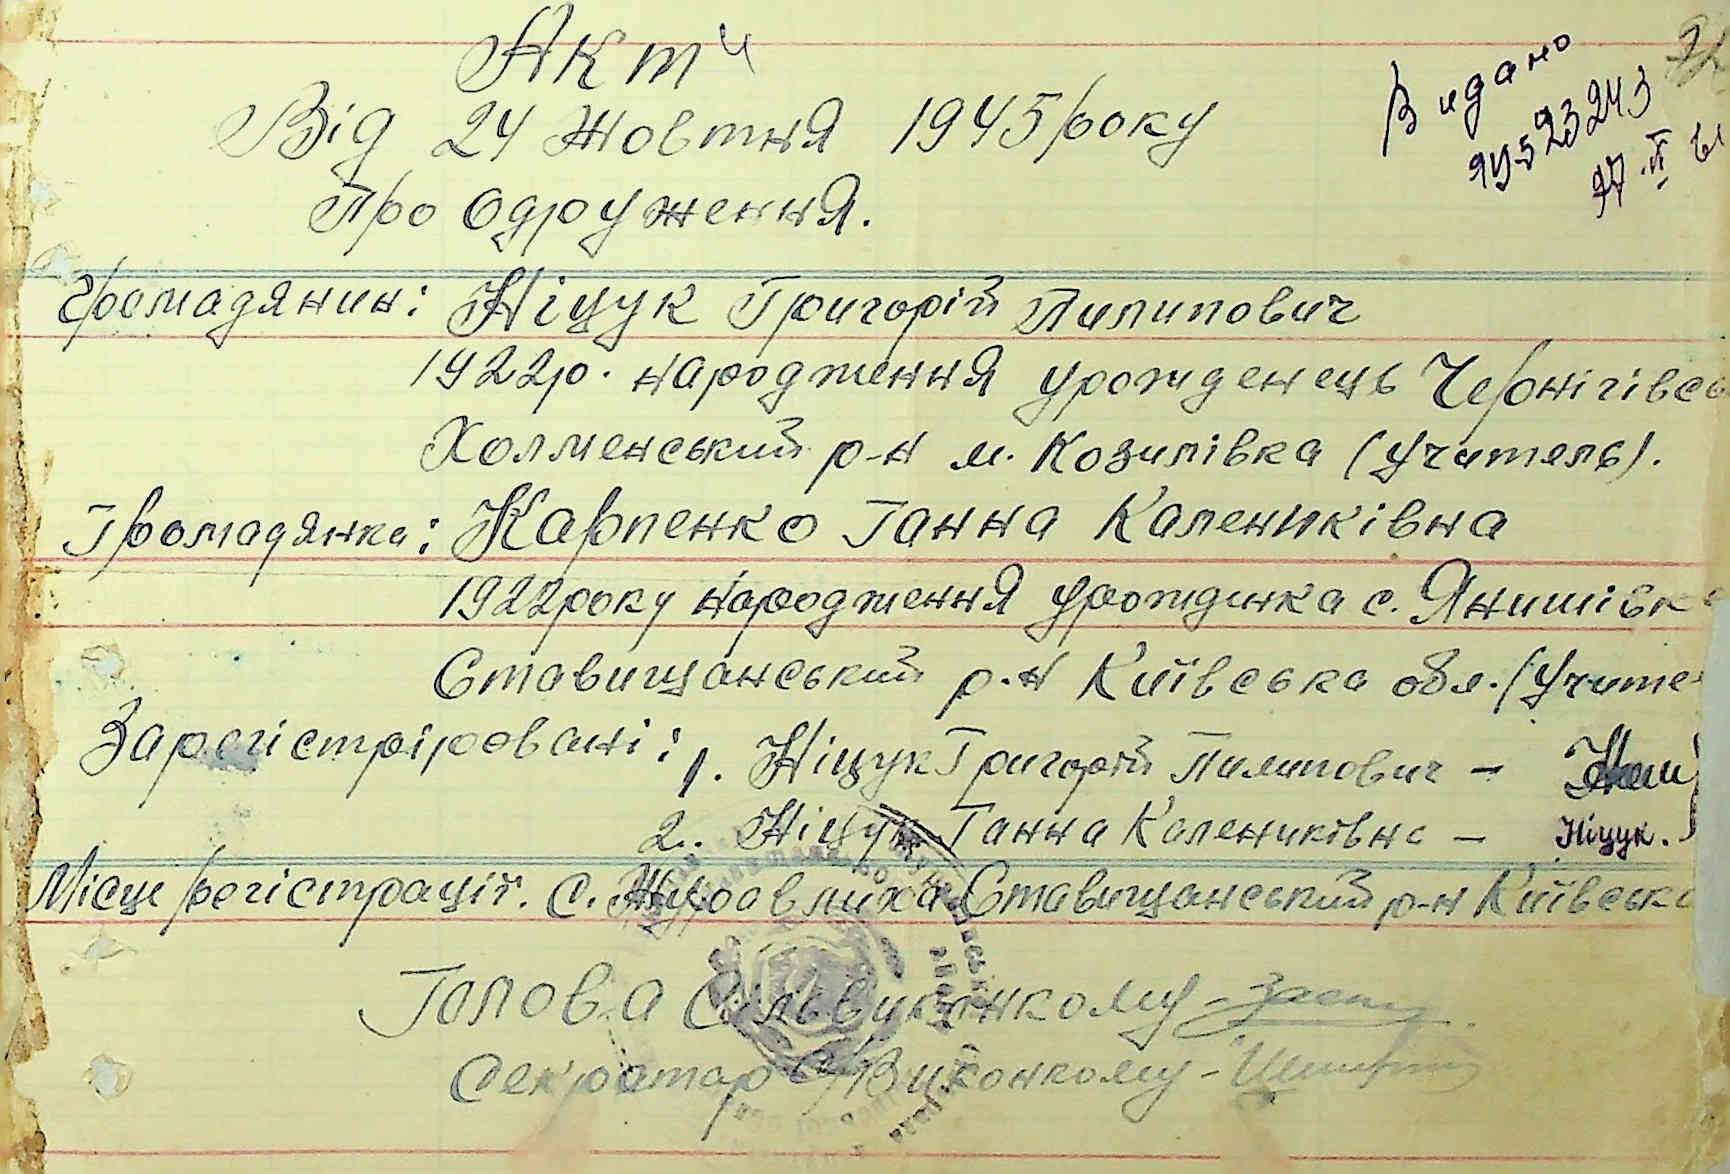 Акт 4
Від 24 Жовтня 1945 року
Про Одруження.
Видано
97523243
17 II
Громадянин: Ніцук Григорій Пилипович
1922р. народження урожденець Чернігівсь
Холменський р-н м. Козилівка (учитель).
Громадянка: Карпенко Ганна Калениківна
1922 року народження урождинка с. Янишівк
Ставищанський р-н Київська обл. (Учите
Зарегістріровані: 1. Ніцук Григорій Пилипович –
2. Ніцук Ганна Калениківна – Ніцук.
Місце регістрації. с. Журавлиха Ставищанський р-н Київська
Голова С/Виконкому –
Секретар С/Виконкому –